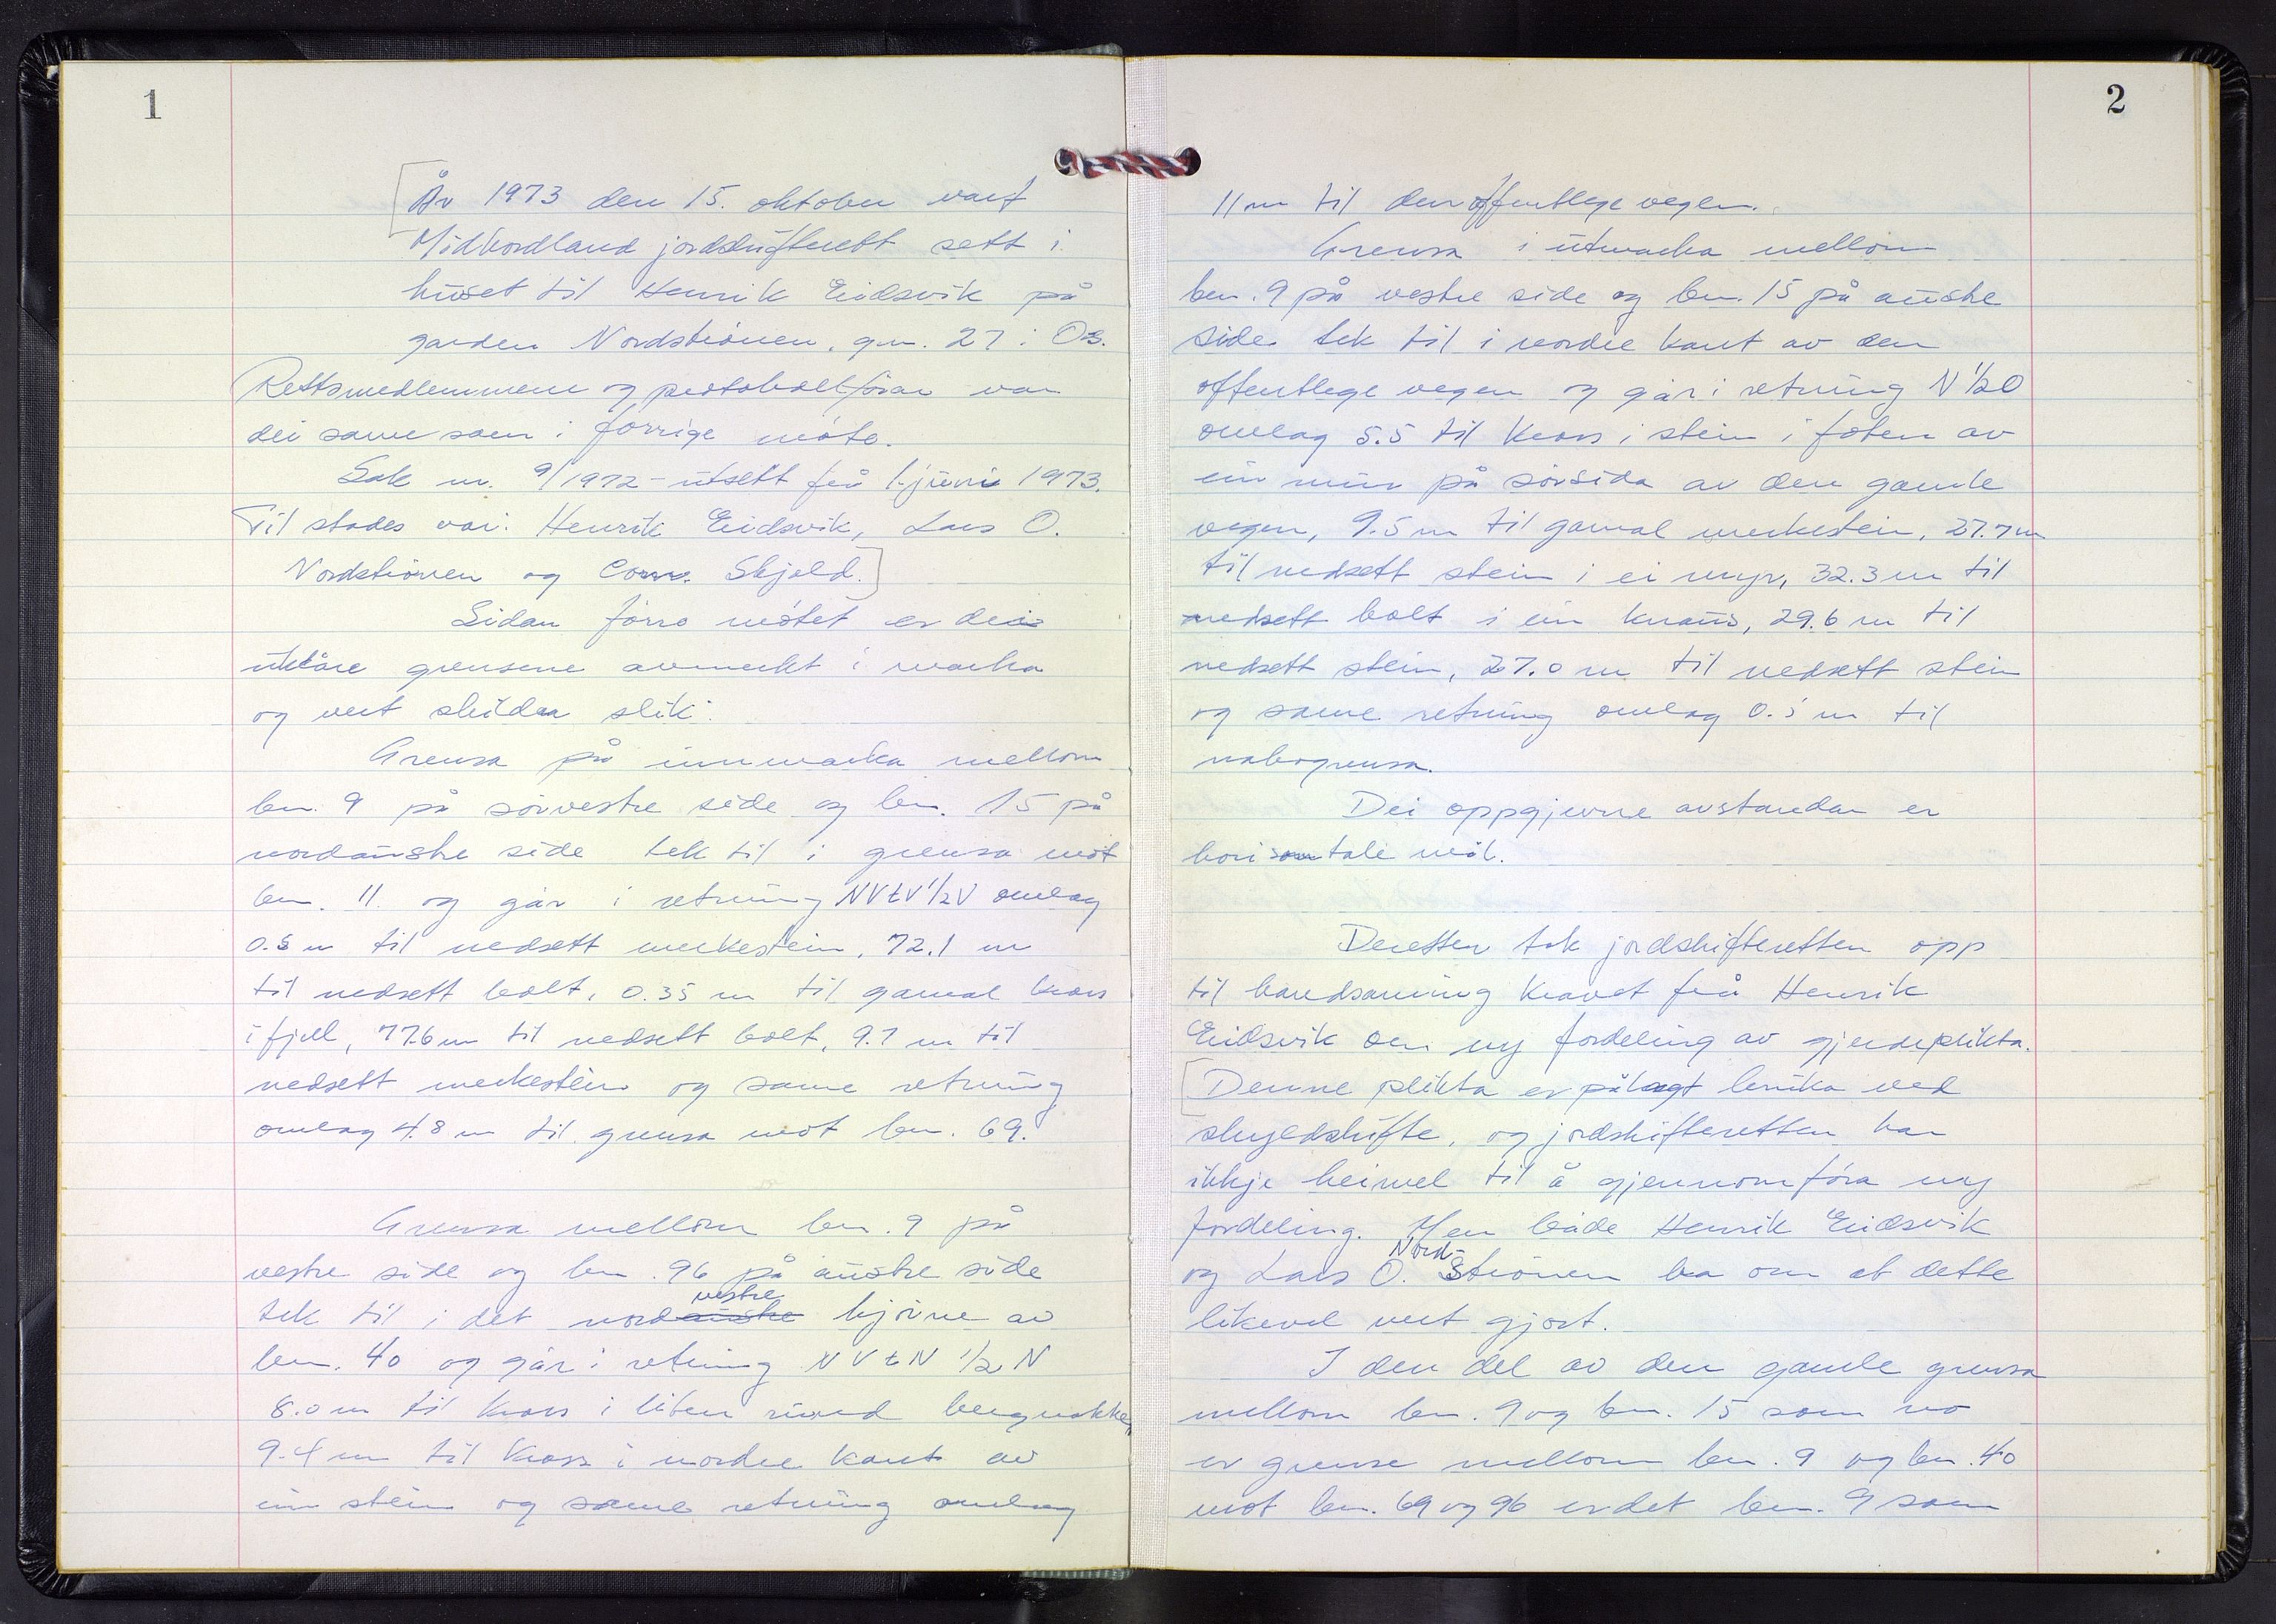 1
År 1973 den 15. oktober vart
Midhordland jordskifterett sett i
huset til Henrik Eidsvik på
garden Nordströnen, gnr. 27 i Os.
Rettsmedlemmene og protokollförar var
dei same som i förrige möte.
Sak nr. 9/1972 - utsett frå 1. juni 1973.
Til stades var: Henrik Eidsvik, Lars O.
Nordströnen og Conr. Skjeld.
Sidan förre mötet er dei
uklåre grensene avmerkt i marka
og vert skildra slik:
Grensa på innmarka mellom
bnr. 9 på sörvestre side og bnr. 15 på
nordaustre side tek til i grensa mot
bnr. 11 og går i retning NVtV½V omlag
0.8 m til nedsett merkestein, 72.1 m
til nedsett bolt, 0.35 m til gamal kross
i fjell, 77.6 m til nedsett bolt, 9.7 m til
nedsett merkestein og same retning
omlag 4.8 m til grensa mot bnr. 69.
Grensa mellom bnr. 9 på
vestre side og bnr. 96 på austre side
vestre
tek til i det nordaustre hjörne av
bnr. 40 og går i retning NVtN ½ N
8.0 m til kross i liten rund bergnakke,
9.4 m til kross i nordre kant av
ein stein og same retning omlag
2
11 m til den offentlege vegen.
Grensa i utmarka mellom
bnr. 9 på vestre side og bnr. 15 på austre
side tek til i nordre kant av den
offentlege vegen og går i retning N ½ O
omlag 5.5 til kross i stein i foten av
ein mur på sörsida av den gamle
vegen, 9.5 m til gamal merkestein, 27.7 m
til nedsett stein i ei myr, 32.3 m til
nedsett bolt i ein knaus, 29.6 m til
nedsett stein, 27.0 m til nedsett stein
og same retning omlag 0.5 m til
nabogrensa.
Dei oppgjevne avstandar er
horisontale mål.
Deretter tok jordskifteretten opp
til handsaming kravet frå Henrik
Eidsvik om ny fordeling av gjerdeplikta.
Denne plikta er pålagt bruka ved
skyldskifte, og jordskifteretten har
ikkje heimel til å gjennomföra ny
fordeling. Men både Henrik Eidsvik
Nord-
og Lars O. Strönen ba om at dette
likevel vert gjort.
I den del av den gamle grensa
mellom bnr. 9 og bnr. 15 som no
er grense mellom bnr. 9 og bnr. 40
mot bnr. 69 og 96 er det bnr. 9 som